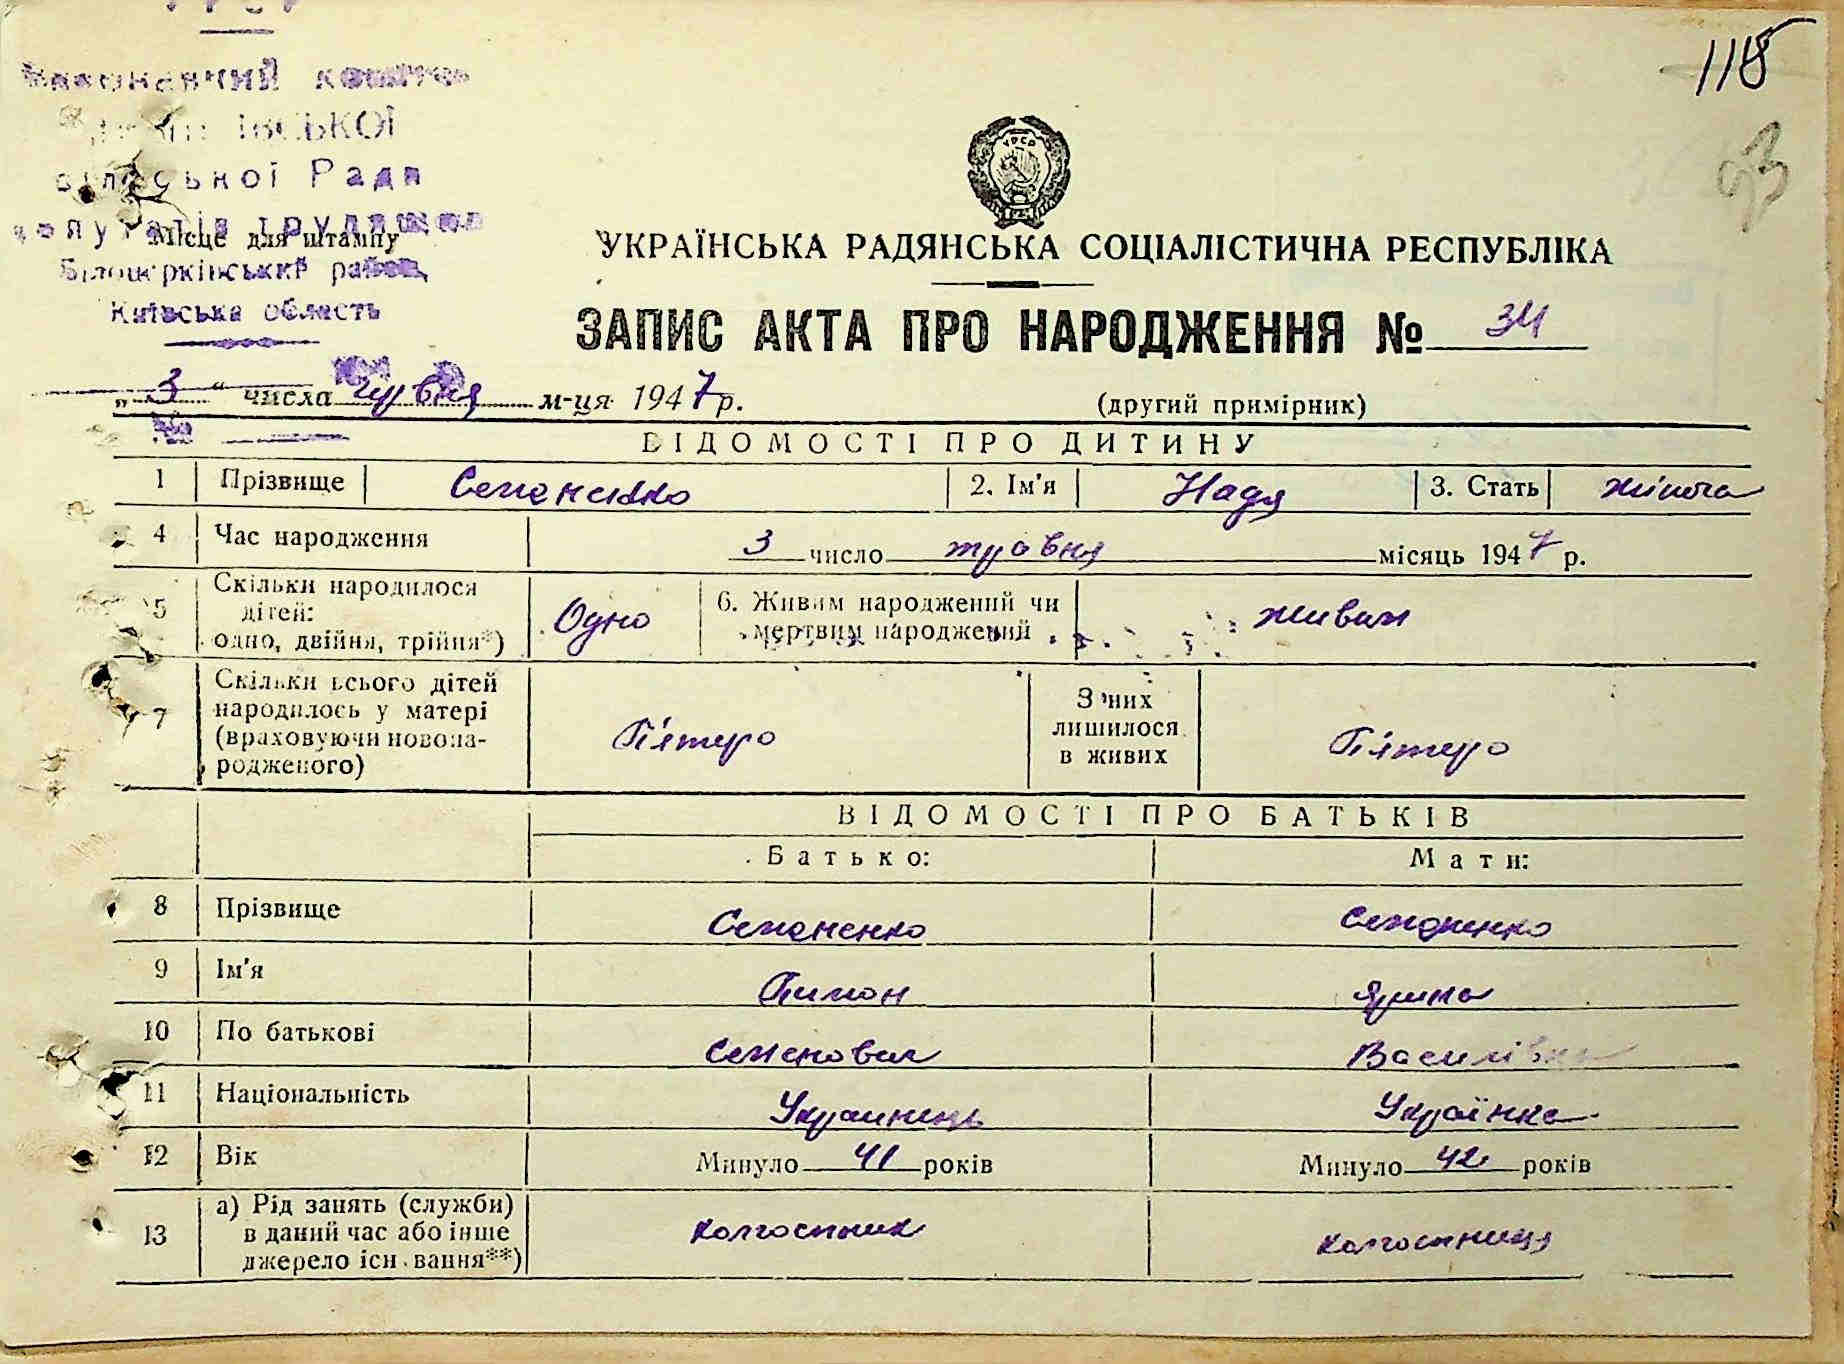 УРСР
118
93
сільської Ради
Місце для штампу
Білоцерківський район,
Київська область
УКРАЇНСЬКА РАДЯНСЬКА СОЦІАЛІСТИЧНА РЕСПУБЛІКА
ЗАПИС АКТА ПРО НАРОДЖЕННЯ № 34
„ 3 “ числа червня м-ця 1947 р.
(другий примірник)
ВІДОМОСТІ ПРО ДИТИНУ
1 Прізвище Семененко 2. Ім'я Надя 3. Стать жіноча
4 Час народження 3 число травня місяць 1947 р.
5 Скільки народилося дітей: одно, двійня, трійня*) Одно 6. Живим народжений чи мертвим народжений живим
7 Скільки всього дітей народилось у матері (враховуючи новонародженого) П'ятеро З них лишилося в живих П'ятеро
ВІДОМОСТІ ПРО БАТЬКІВ
Батько: Мати:
8 Прізвище Семененко Семененко
9 Ім'я Пимон Ярина
10 По батькові Семенович Василівна
11 Національність Украинець Українка
12 Вік Минуло 41 років Минуло 42 років
13 а) Рід занять (службы) в даний час або інше джерело існування**) колгоспник колгоспниця